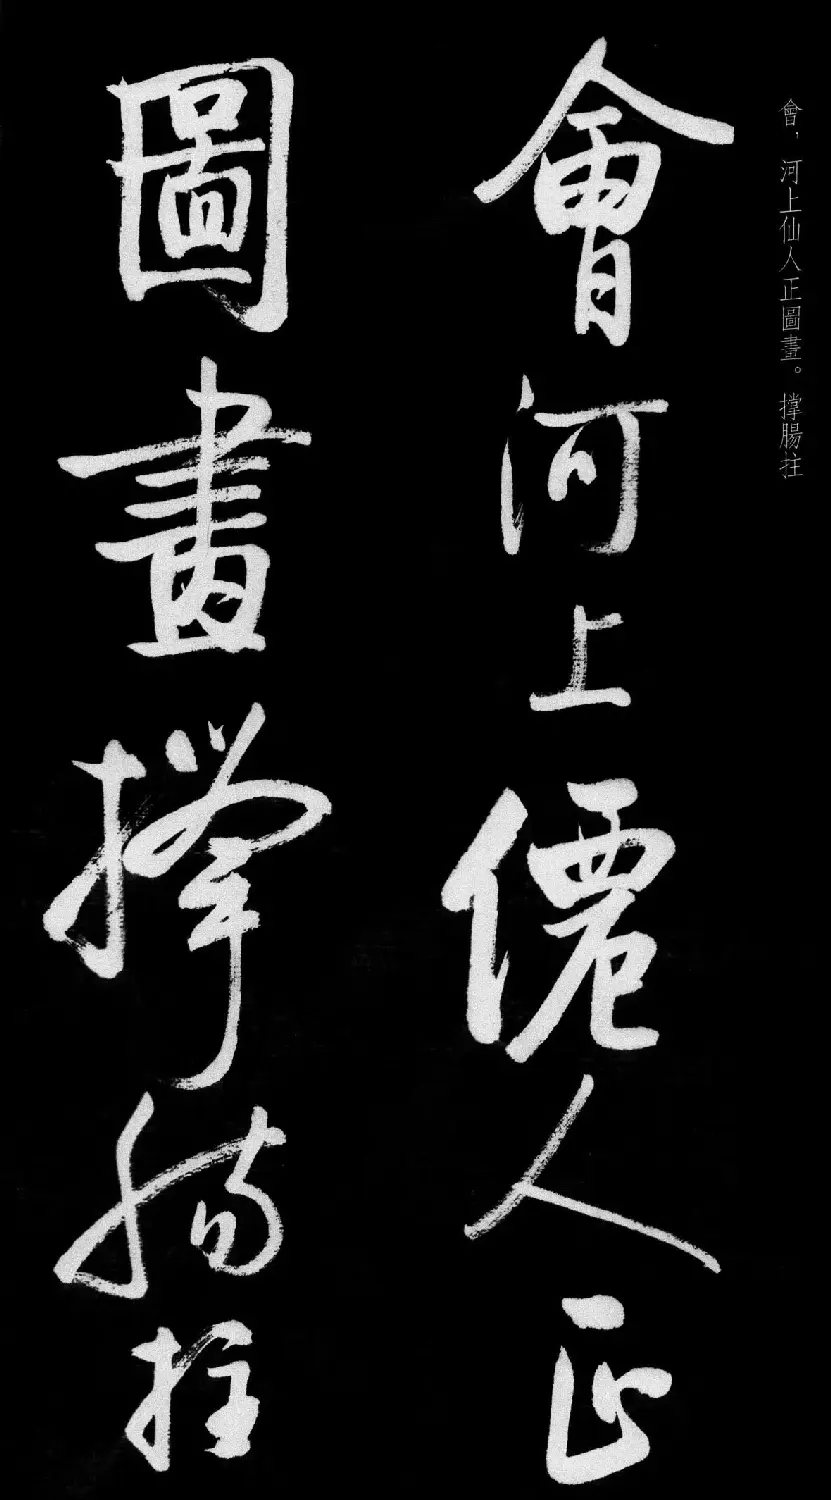 會,河上仙人正圖畫。撑腸拄
會河上僊人正
圖畫撑腸拄